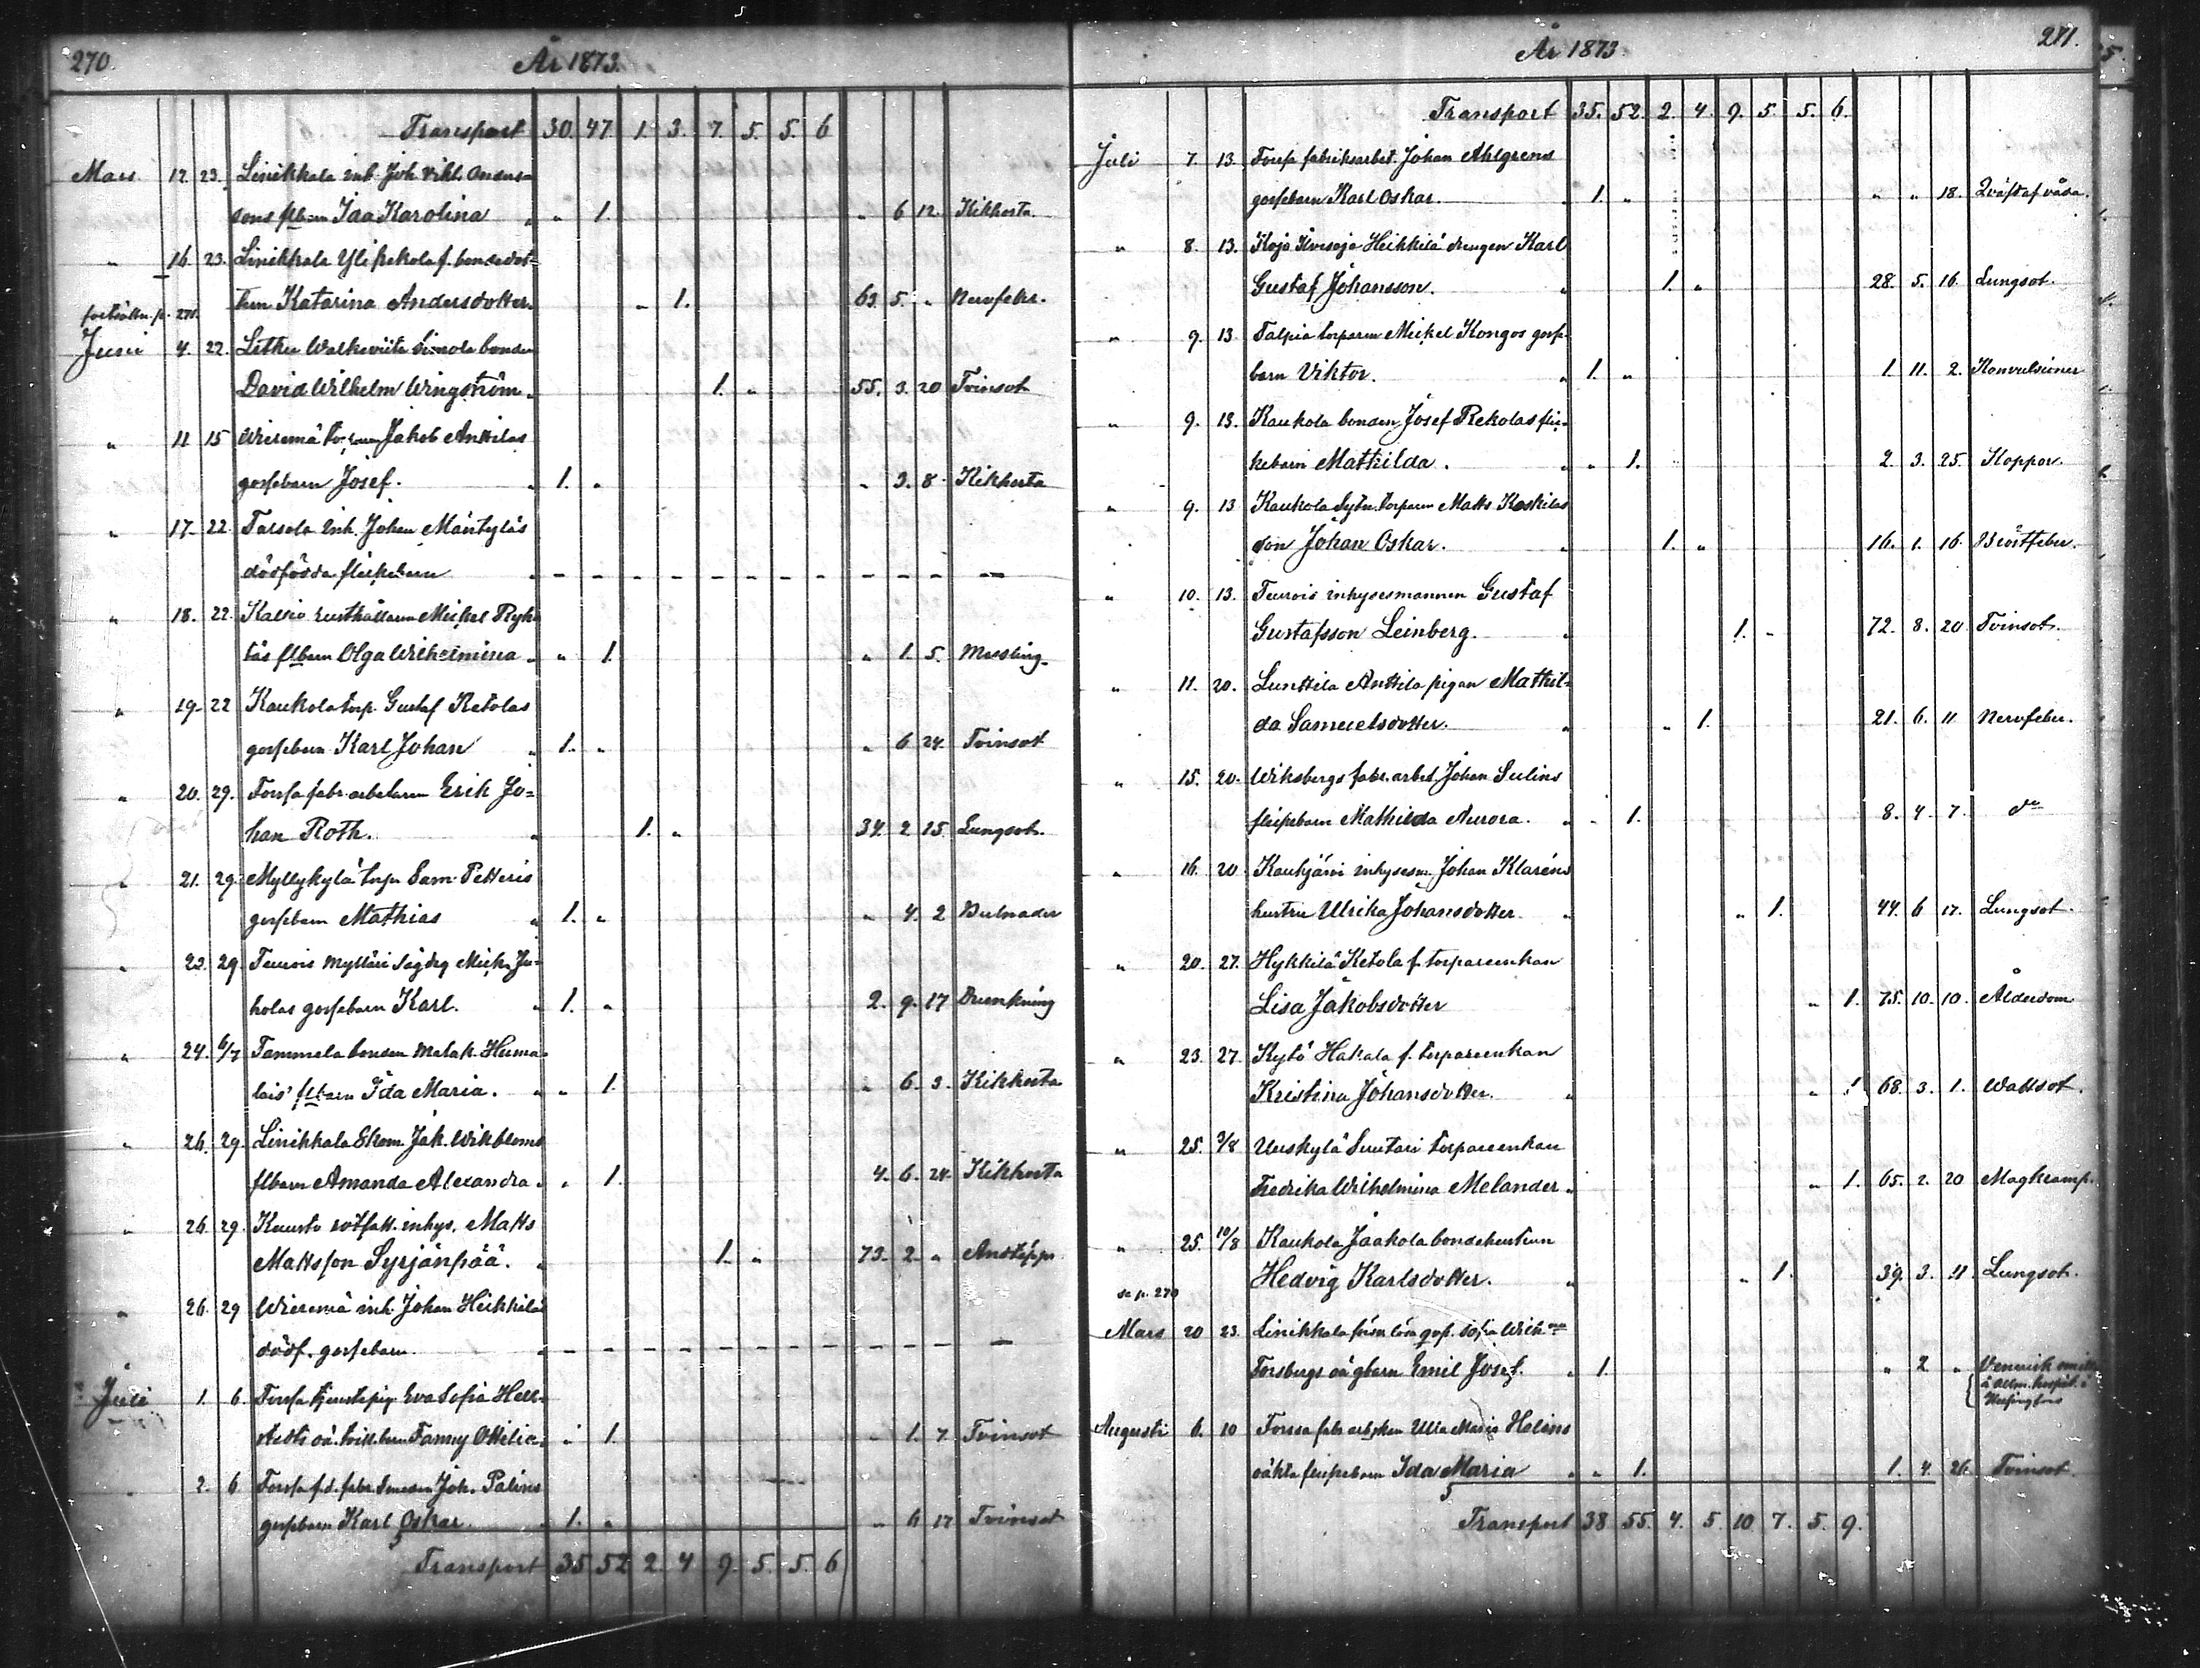 270
År 1873.
Transport 30. 47. 1. 3. 7. 5. 5. 6
Mars 12. 23. Linikkala inh. Joh. Vikt. Anders-
sons flbarn Ida Karolina " " 1. " 6 12. Kikhosta
" 16. 23. Linikkala Ylipekola f. bondedot-
tern Katarina Andersdotter. " 1. 63. 5. " Nervfeber.
fortsättn. p. 271.
Juni 4. 22. Letku Walkeviita Simola bonden
David Wilhelm Wingström. 1. " 55. 3. 20 Tvinsot
" 11 15 Wieremä torparen Jakob Anttilas
gossebarn Josef. " 1. " " 3. 8. Kikhosta
" 17. 22. Talsola Inh. Johan Mäntyläs
dödfödda flickebarn " - - - - - - - - - - - -
" 18. 22. Kalvio rusthållaren Mickel Ryh-
täs flbarn Olga Wilhelmina " " 1. " 1. 5. Messling
" 19. 22 Kaukola torp. Gustaf Ketolas
gossebarn Karl Johan " 1. " " 6 24. Tvinsot
" 20. 29. Forssa fabr. arbetaren Erik Jo-
han Roth. " 1. " 34. 2 15. Lungsot.
" 21. 29. Myllykylä torp. Sam. Petteris
gossebarn Mathias " 1. " " 4. 2 Bulnader
" 23. 29. Teurois Mylläri Mick. Ju-
holas gossebarn Karl. " 1. " 2. 9. 17 Drunkning
" 24. 6/7 Tammela bonden Malak. Huma-
lais' flbarn Ida Maria. " " 1. " 6. 3. Kikhosta
" 26. 29. Linikkala Skom. Jak. Wikbloms
flbarn Amanda Alexandra " " 1. 4. 6. 24. Kikhosta
" 26. 29. Kuusto rotfatt. inhys. Matts
Mattsson Syrjänpää. " 1. " 73. 2. " Andtäppa
" 26. 29 Wieremä inh. Johan Heikkiläs
dödf. gossebarn. " - - - - - - - - - - - -
Juli 1. 6. Forssa tjenstepig. Eva Sofia Hell-
stedts oä. tvill. barn Fanny Ottilia " " 1. " 1. 7 Tvinsot
" 2. 6. Forssa f.d. fabr. smeden Joh. Palins
gossebarn Karl Oskar " 1. " " 6 17 Tvinsot
Transport 35 52 2. 4 9. 5. 5. 6
271.
År 1873
Transport 35. 52. 2. 4. 9. 5. 5. 6.
Juli 7. 13. Forssa fabriksarbet. Johan Ahlgrens
gossebarn Karl Oskar. " 1. " " " 18. Qväfd af våda.
" 8. 13. Kojo Heikkilä drengen Karl
Gustaf Johansson. " 1. " 28. 5. 16. Lungsot.
" 9. 13 Talpia torparen Mickel Kongos gosse-
barn Viktor. " 1. " 1. 11. 2. Konvulsioner
" 9. 13. Kaukola bonden Josef Rekolas flic-
kebarn Mathilda. " " 1. 2. 3. 25. Koppor.
" 9. 13 Kaukola Sytn. torparen Matts Koskilas
son Johan Oskar. " 1. " 16. 1. 16. Bröstfeber.
" 10. 13. Teurois inhysesmannen Gustaf
Gustafsson Leinberg. " 1. " 72. 8. 20 Tvinsot.
" 11. 20. Lunttila Anttila pigan Mathil-
da Samuelsdotter. " " 1. 21. 6. 11 Nervfeber.
" 15. 20. Wiksbergs fabr. arbet. Johan Sulins
flickebarn Mathilda Aurora. " " 1. 8. 4. 7. do
" 16. 20 Kauhjärvi inhysesm. Johan Klaréns
hustru Ulrika Johansdotter " " 1. 44. 6 17. Lungsot.
" 20. 27. Hykkilä Ketola f. torpareenkan
Lisa Jakobsdotter " 1. 75. 10. 10. Ålderdom
" 23. 27. Kytö Hakala f. torpareenkan
Kristina Johansdotter. " " 1. 68. 3. 1. Wattsot.
" 25. 3/8 Uuskylä Suutari torpareenkan
Fredrika Wilhelmina Melander " " 1. 65. 2. 20 Magkramp.
" 25. 10/8 Kaukola Jaakola bondehustrun
Hedvig Karlsdotter. " " 1. 39. 3. 11. Lungsot.
se p. 270
Mars 20 23. Linikkala Sofia Wilh:na
Forsbergs oä gbarn Emil Josef. " 1. " 2 " Venerisk smitta
å allm. hospit. i
Helsingfors
Augusti 6. 10 Forssa fabr. Ulla Maria Helins
oäkta flickebarn Ida Maria " " 1. 1. 4. 26. Tvinsot.
Transport 38 55. 4. 5. 10 7. 5. 9.